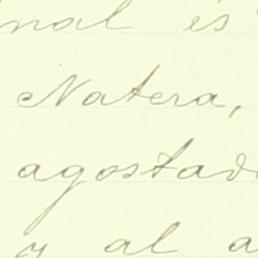 nal es
Natera,
agostad
y al a